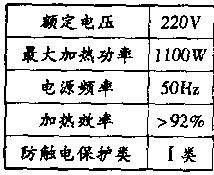 额定电压 220V
最大加热功率 1100W
电源频率 50Hz
加热效率 >92%
防触电保护类 I类